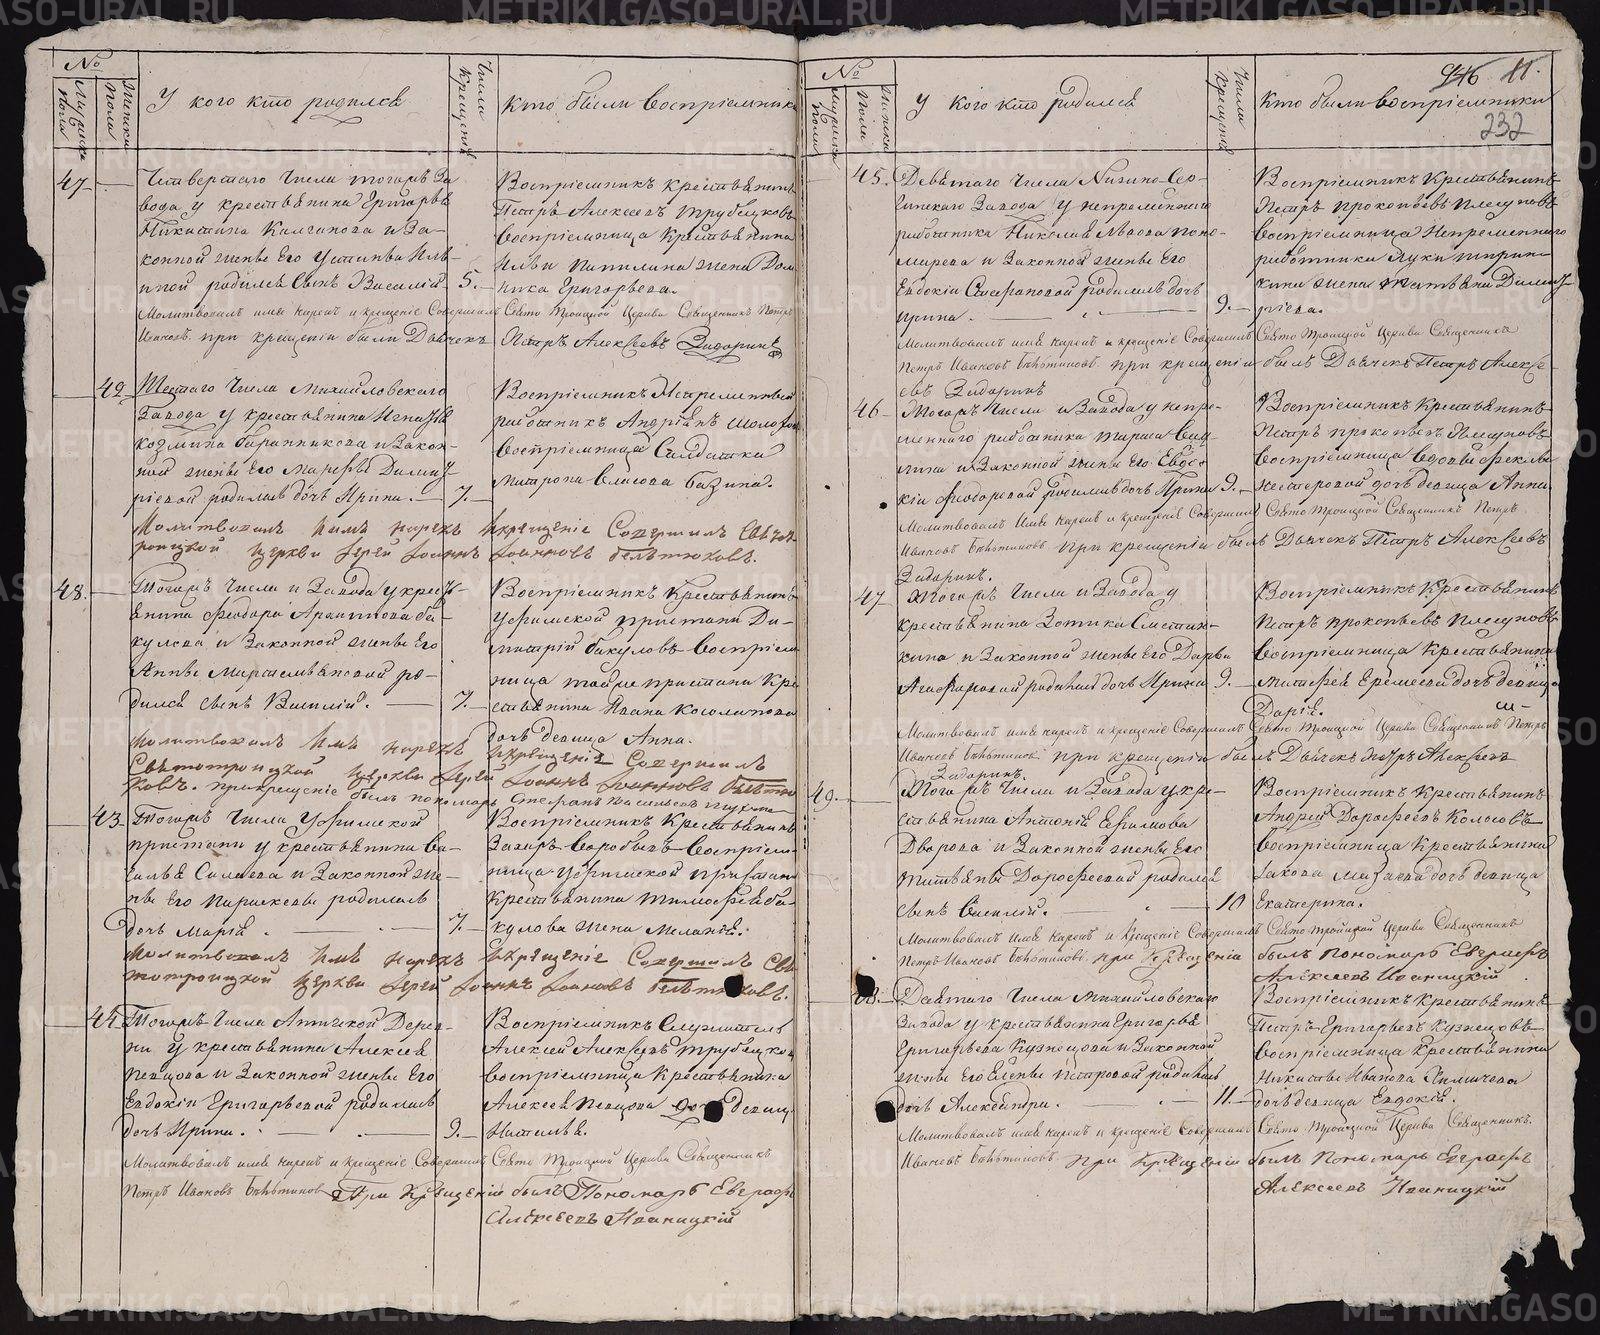 №
Мужеска пола
Женска пола
У кого кто родился
Числа крещенїя
Кто были воспрїемники
47
Четвертаго числа тогожъ за
вода у крестьянина Григорья
Никитина Калганова и за-
конной жены его Устиньи Иль-
иной родился сынъ Василїй 5.
Воспрїемникъ крестьянинъ
Петръ Алексеевъ Трубеуковъ
воспрїемница крестьянина
Ильи Папилина жена Дом
ника Григорьева.
Молитвовалъ имя нарекъ и крещенїе совершилъ Свято Троицкой Церкви Священникъ Петръ
Ивановъ при крещенїи были Дьячекъ Петръ Алексеевъ Задоринъ
42
Шестаго числа Михайловскаго
Завода у крестьянина Игнатья
Козмина Баранникова и закон-
ной жены его Марфы Димит-
рїевой родилась дочь Ирина. 7.
Воспрїемникъ Непременный
работникъ Андрїянъ
воспрїемница Салдатка
Матрона Власова Базина.
Молитвовалъ имя нарекъ и крещенїе совершилъ Свято
роицкой Церкви Їерей Їоаннъ Їоанновъ Белетюковъ.
48.
Тогожъ числа и Завода у кресть-
янина Феодора Архипова Ба-
кулева и законной жены его
Анны Мартемьяновой ро-
дился сынъ Василїй. 7.
Воспрїемникъ крестьянинъ
Уфимской пристани Ди-
митрїй Бакуловъ воспрїем
ница тойже пристани кре
стьянина Ивана
дочь девица Анна.
Молитвовалъ имя нарекъ и крещенїе совершилъ
Святотроицкой Церкви Їерей Їоаннъ Їоанновъ Белетю
ковъ. при крещенїе былъ пономарь Стефанъ Васильевъ
43
Тогожъ числа Уфимской
пристани у крестьянина Ва-
силья Силаева и законной же-
ны его Параскевы родилась
дочь Марїя. 7.
Воспрїемникъ крестьянинъ
Захаръ Воробьевъ воспрїем
ница Уфимской пристани
крестьянина Тимофея Ба-
кулова жена Меланїя.
Молитвовалъ имя нарекъ и крещенїе совершилъ Свя
тотроицкой Церкви Їерей Їоаннъ Їоанновъ Белетюковъ.
44
Тогожъ числа Аптучкой Дерев-
ни у крестьянина Алексея
Певцова и законной жены его
Евдокїи Григорьевой родилась
дочь Ирина. 9.
Воспрїемникъ Служитель
Алексей Алексеевъ Трубеуков
воспрїемница крестьянина
Алексея Певцова дочь девиц
Наталья.
Молитвовалъ имя нарекъ и крещенїе совершилъ Свято Троицкой Церкви Священникъ
Петръ Ивановъ при крещенїи былъ Пономарь Евграфъ
Алексеевъ Иваницкїй
№
Мужеска пола
Женска пола
У кого кто родился
Числа крещенїя
Кто были воспрїемники
11.
232
45.
Девятаго числа Низино-Сер-
гинскаго Завода у непременнаго
работника Николая Львова Поно-
марева и законной жены его
Евдокїи Стефановой родилась дочь
Ирина. 9.
Воспрїемникъ крестьянинъ
Петръ Прокопьевъ Плесуновъ
воспрїемница Непременнаго
работника Луки
кина жена Татьяна Димит-
рїева.
Молитвовалъ имя нарекъ и крещенїе совершилъ Свято Троицкой Церкви Священникъ
Петръ Ивановъ при крещенїи былъ Дьячекъ Петръ Алексе-
евъ Задоринъ
46
Тогожъ числа и Завода у непре-
меннаго работника Тараса
и законной жены его Евдо-
кїи Феодоровой родилась дочь Ирина 9.
Воспрїемникъ крестьянинъ
Петръ Прокопьевъ Плесуновъ
воспрїемница вдовы Феклы
Нестеровой дочь девица Анна
Молитвовалъ имя нарекъ и крещенїе совершилъ Свято Троицкой Священникъ Петръ
Ивановъ при крещенїи былъ Дьячекъ Петръ Алексеевъ
Задоринъ.
47
Тогожъ числа и Завода у
крестьянина Зотика Сметан-
кина и законной жены его Дарьи
Агафоновой родилась дочь Ирина 9.
Воспрїемникъ крестьянинъ
Петръ Прокопьевъ Плесуновъ
воспрїемница крестьянина
Матфея Еремеева дочь девица
Дарїя.
Молитвовалъ имя нарекъ и крещенїе совершилъ Свято Троицкой Церкви Священникъ Петръ
Ивановъ при крещенїи былъ Дьячекъ Петръ Алексеевъ
Задоринъ.
49.
Тогожъ числа и Завода у кре-
стьянина Антонїя Ефимова
Дворова и законной жены его
Татьяны Дорофеевой родился
сынъ Василїй. 10
Воспрїемникъ крестьянинъ
Андрей Дорофеевъ Колосовъ
воспрїемница крестьянина
Іакова дочь девица
Екатерина.
Молитвовалъ имя нарекъ и крещенїе совершилъ Свято Троицкой Церкви Священникъ
Петръ Ивановъ при крещенїи былъ Пономарь Евграфъ
Алексеевъ Иваницкїй
Девятаго числа Михайловскаго
Завода у крестьянина Григорья
Григорьева Кузнецова и законной
жены его Елены Петровой родилась
дочь Александра. 11.
Воспрїемникъ крестьянинъ
Петръ Григорьевъ Кузнецовъ
воспрїемница крестьянина
Никиты Иванова
дочь девица Евдокїя.
Молитвовалъ имя нарекъ и крещенїе совершилъ Свято Троицкой Церкви Священникъ.
Ивановъ при крещенїи былъ Пономарь Евграфъ
Алексеевъ Иваницкїй
METRIKI.GASO-URAL.RU